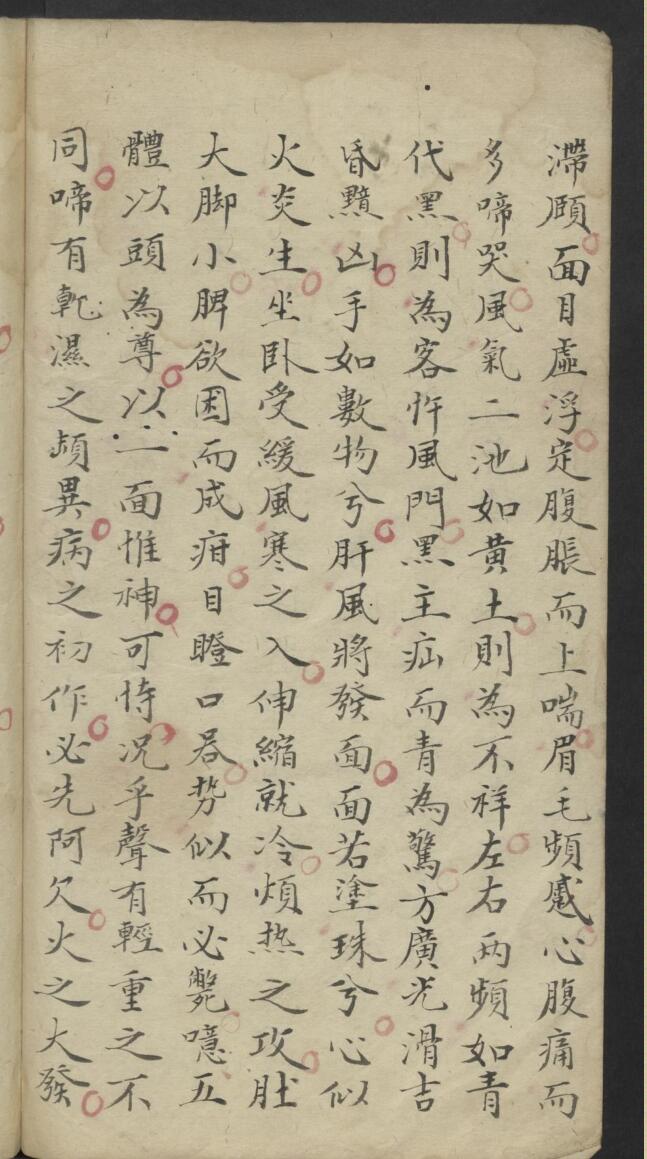 滯頤面目虛浮定腹脹而上喘眉毛頻蹙心腹痛而
多啼哭風氣二池如黃土則為不祥左右两頻如青
代黑則為客忤風門黑主疝而青為驚方廣光滑吉
昏黯凶手如數物兮肝風將發面面若塗珠兮心似
火炎生坐卧受緩風寒之入伸縮就冷煩热之攻肚
大脚小脾欲困而成疳目瞪口呆势似而必斃噫五
體以頭為尊以一面惟神可恃况乎聲有輕重之不
同啼有乹濕之頻異病之初作必先阿欠火之大發